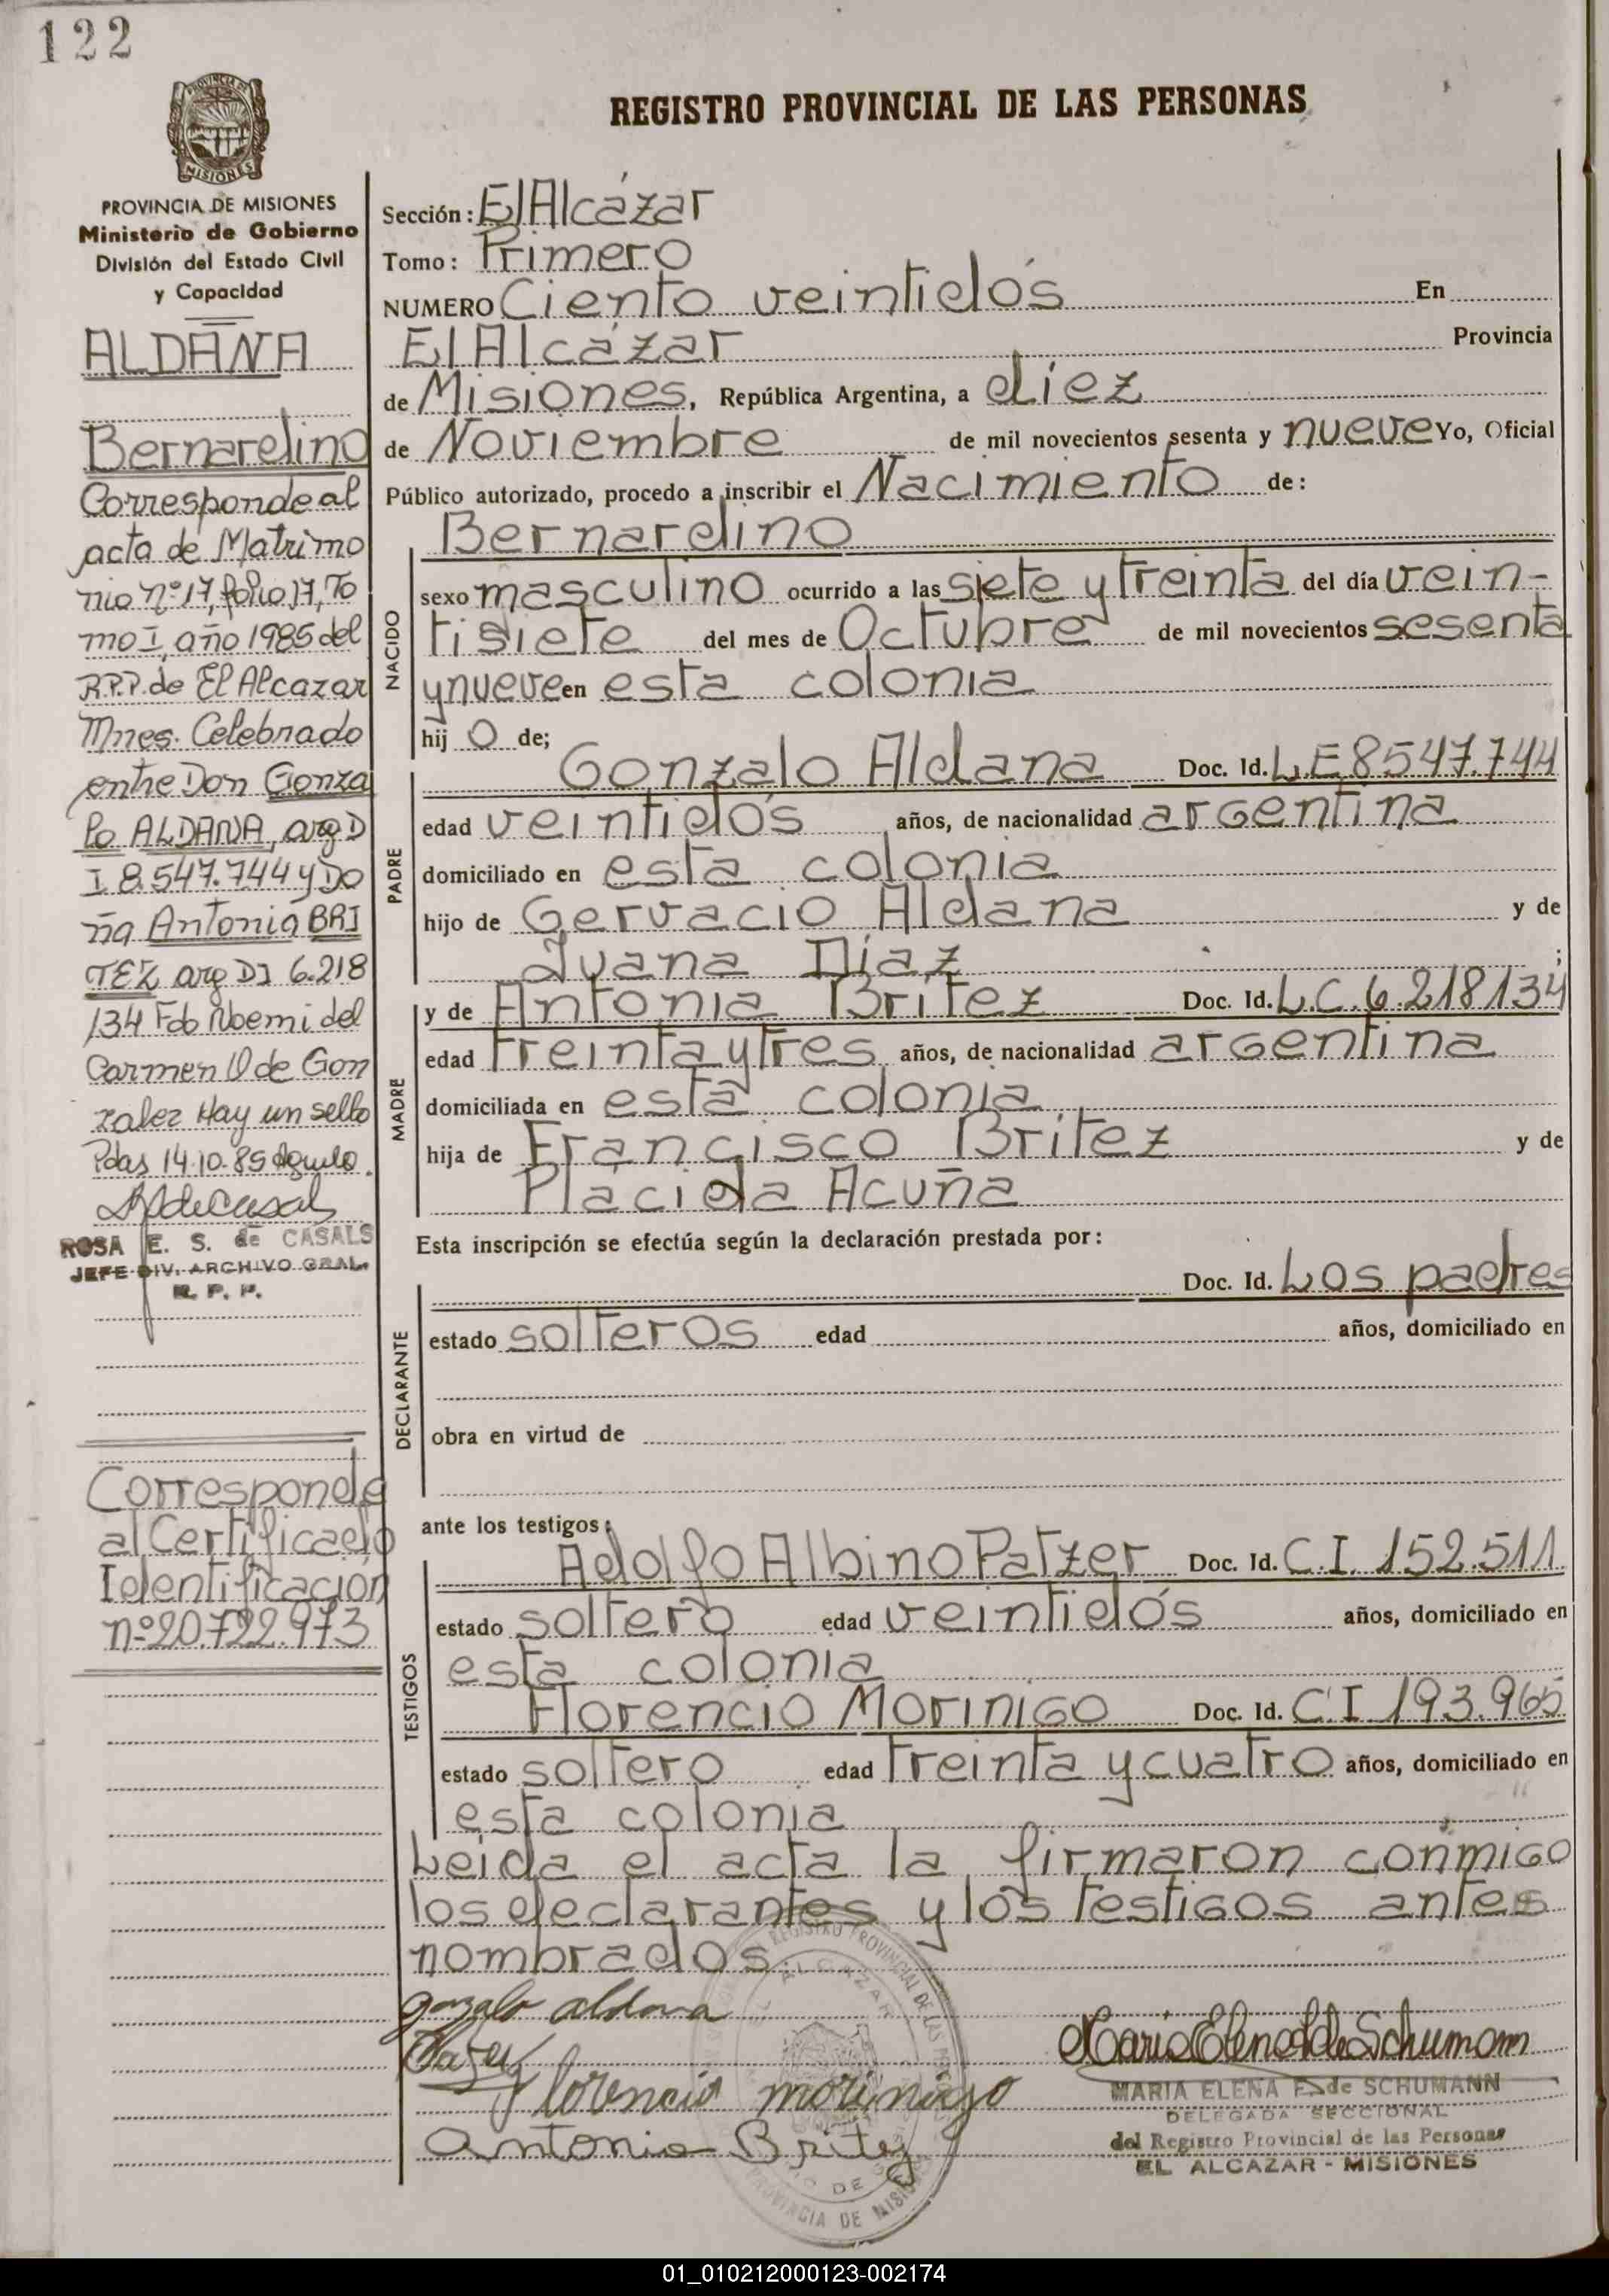 122
PROVINCIA DE MISIONES
REGISTRO PROVINCIAL DE LAS PERSONAS
PROVINCIA DE MISIONES
Ministerio de Gobierno
División del Estado Civil
y Capacidad
ALDANA
Bernardino
Corresponde al
acta de Matrimo
nio nº 17, folio 17, To
mo I, año 1985 del
R.P.P. de El Alcazar
Mnes. Celebrado
entre Don Gonza
lo ALDANA, arg D
I 8.547.744 y Do
ña Antonia BRI
TEZ arg DI 6.218
134 Fdo Noemi del
Carmen O de Gon
zalez Hay un sello
Pdas 14.10.85
ROSA E. S. de CASALS
JEFE DIV. ARCHIVO GRAL.
R. P. P.
Corresponde
al Certificado
Identificación
nº 20.722.973
Sección: El Alcázar
Tomo: Primero
NUMERO Ciento veintidós En
El Alcázar Provincia
de Misiones, República Argentina, a diez
de Noviembre de mil novecientos sesenta y nueve Yo, Oficial
Público autorizado, procedo a inscribir el Nacimiento de:
NACIDO
Bernardino
sexo masculino ocurrido a las siete y treinta del día vein-
tisiete del mes de Octubre de mil novecientos sesenta
y nueve en esta colonia
hij o de;
PADRE
Gonzalo Aldana Doc. Id. L.E 8547.744
edad veintidós años, de nacionalidad argentina
domiciliado en esta colonia
hijo de Gervacio Aldana y de
Juana Díaz ;
MADRE
y de Antonia Britez Doc. Id. L.C. 6.218134
edad treinta y tres años, de nacionalidad argentina
domiciliada en esta colonia
hija de Francisco Britez y de
Plácida Acuña
Esta inscripción se efectúa según la declaración prestada por:
DECLARANTE
Doc. Id. Los padres
estado solteros edad años, domiciliado en
obra en virtud de
ante los testigos:
TESTIGOS
Adolfo Albino Patzer Doc. Id. C.I. 152.511
estado soltero edad veintidós años, domiciliado en
esta colonia
Florencio Morinigo Doc. Id. C.I 193.965
estado soltero edad treinta y cuatro años, domiciliado en
esta colonia
Leida el acta la firmaron conmigo
los declarantes y los testigos antes
nombrados.
gonzalo aldana
Patzer
florencio morinigo
Antonia Britez
Maria Elena F de Schumann
MARIA ELENA F. de SCHUMANN
DELEGADA SECCIONAL
del Registro Provincial de las Personas
EL ALCAZAR - MISIONES
REGISTRO PROVINCIAL DE LAS
ALCAZAR
PROVINCIA DE MISIONES
01_010212000123-002174